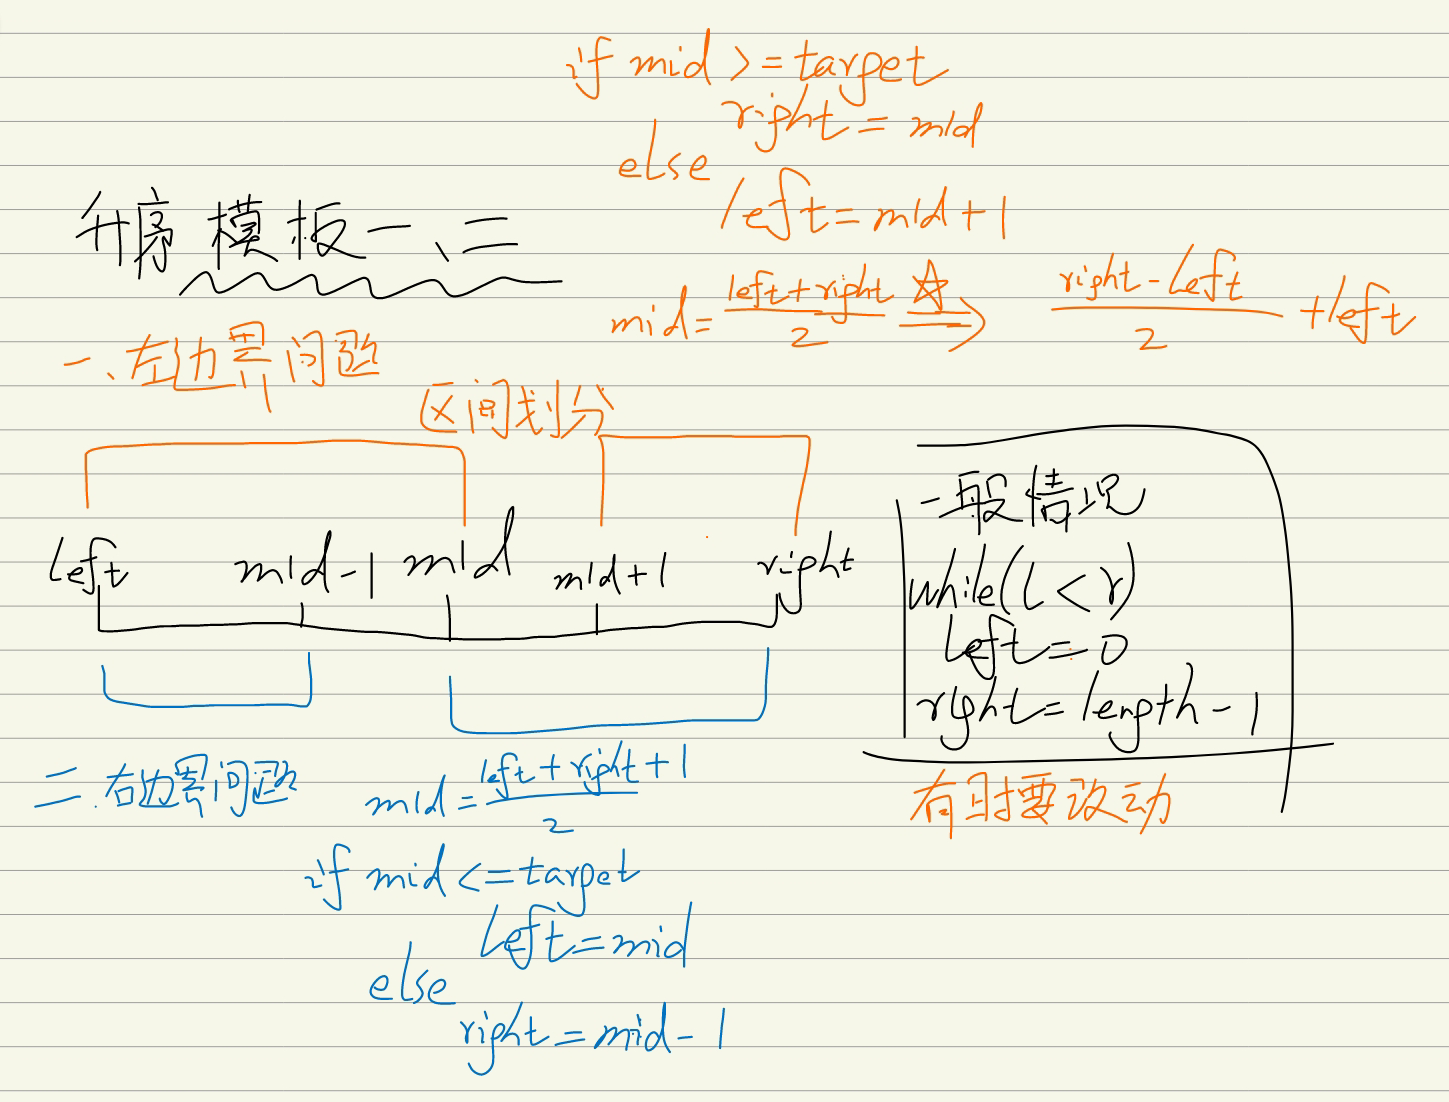 if mid >= target
right = mid
else
left = mid + 1
升序模板一、二
mid = (left + right)/2 ⇒ (right - left)/2 + left
一、左边界问题
区间划分
left mid-1 mid mid+1 right
一般情况
while(l < r)
left = 0
right = length - 1
有时要改动
二.右边界问题
mid = (left + right + 1)/2
if mid <= target
left = mid
else
right = mid - 1